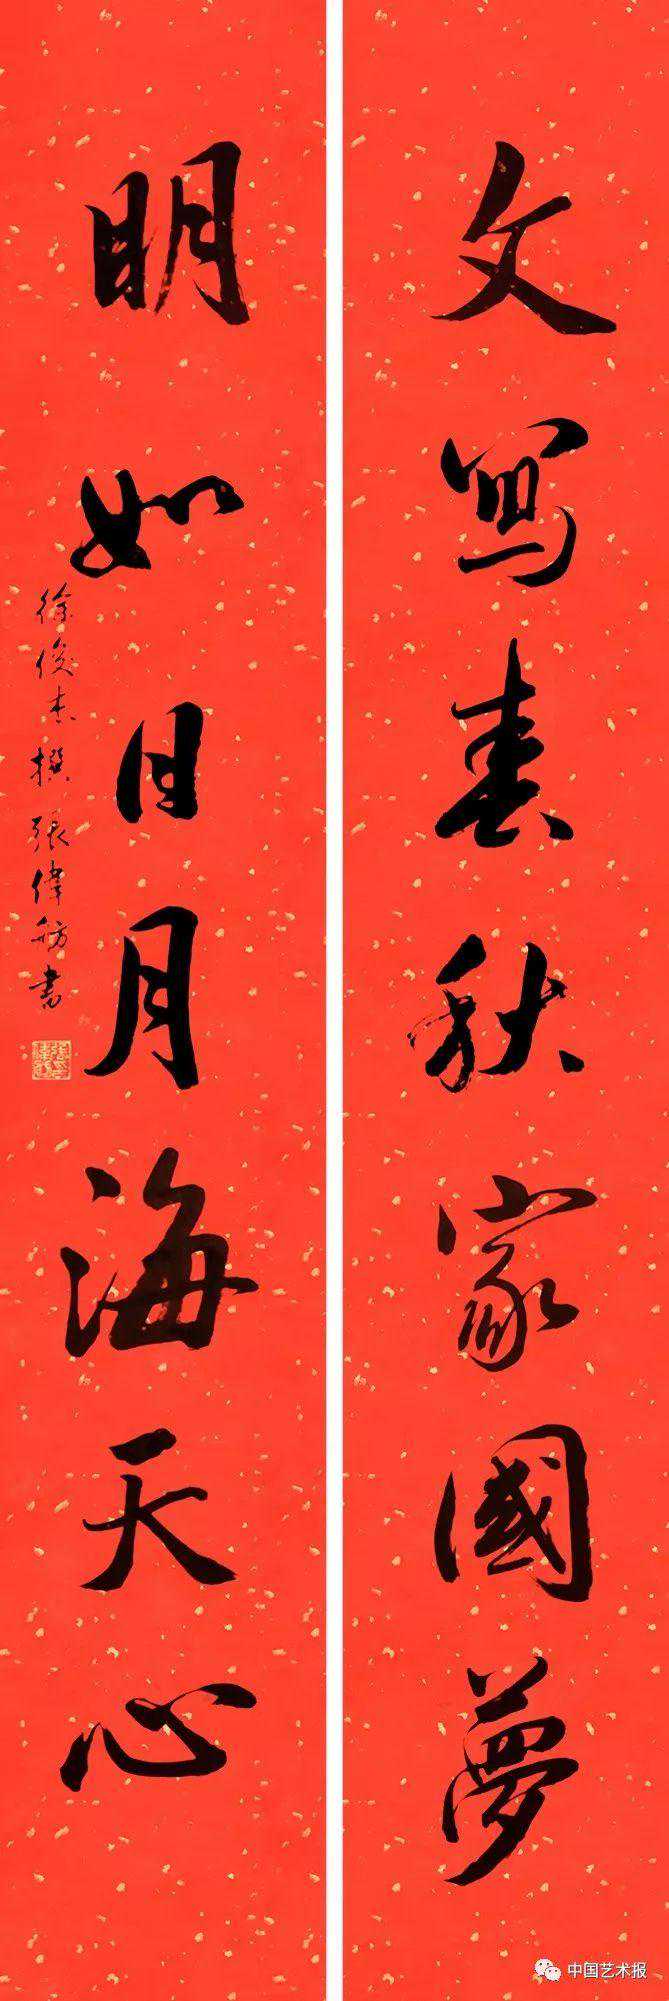 文寫春秋家國夢
明如日月海天心
徐俊杰撰 張偉舫書
中国艺术报